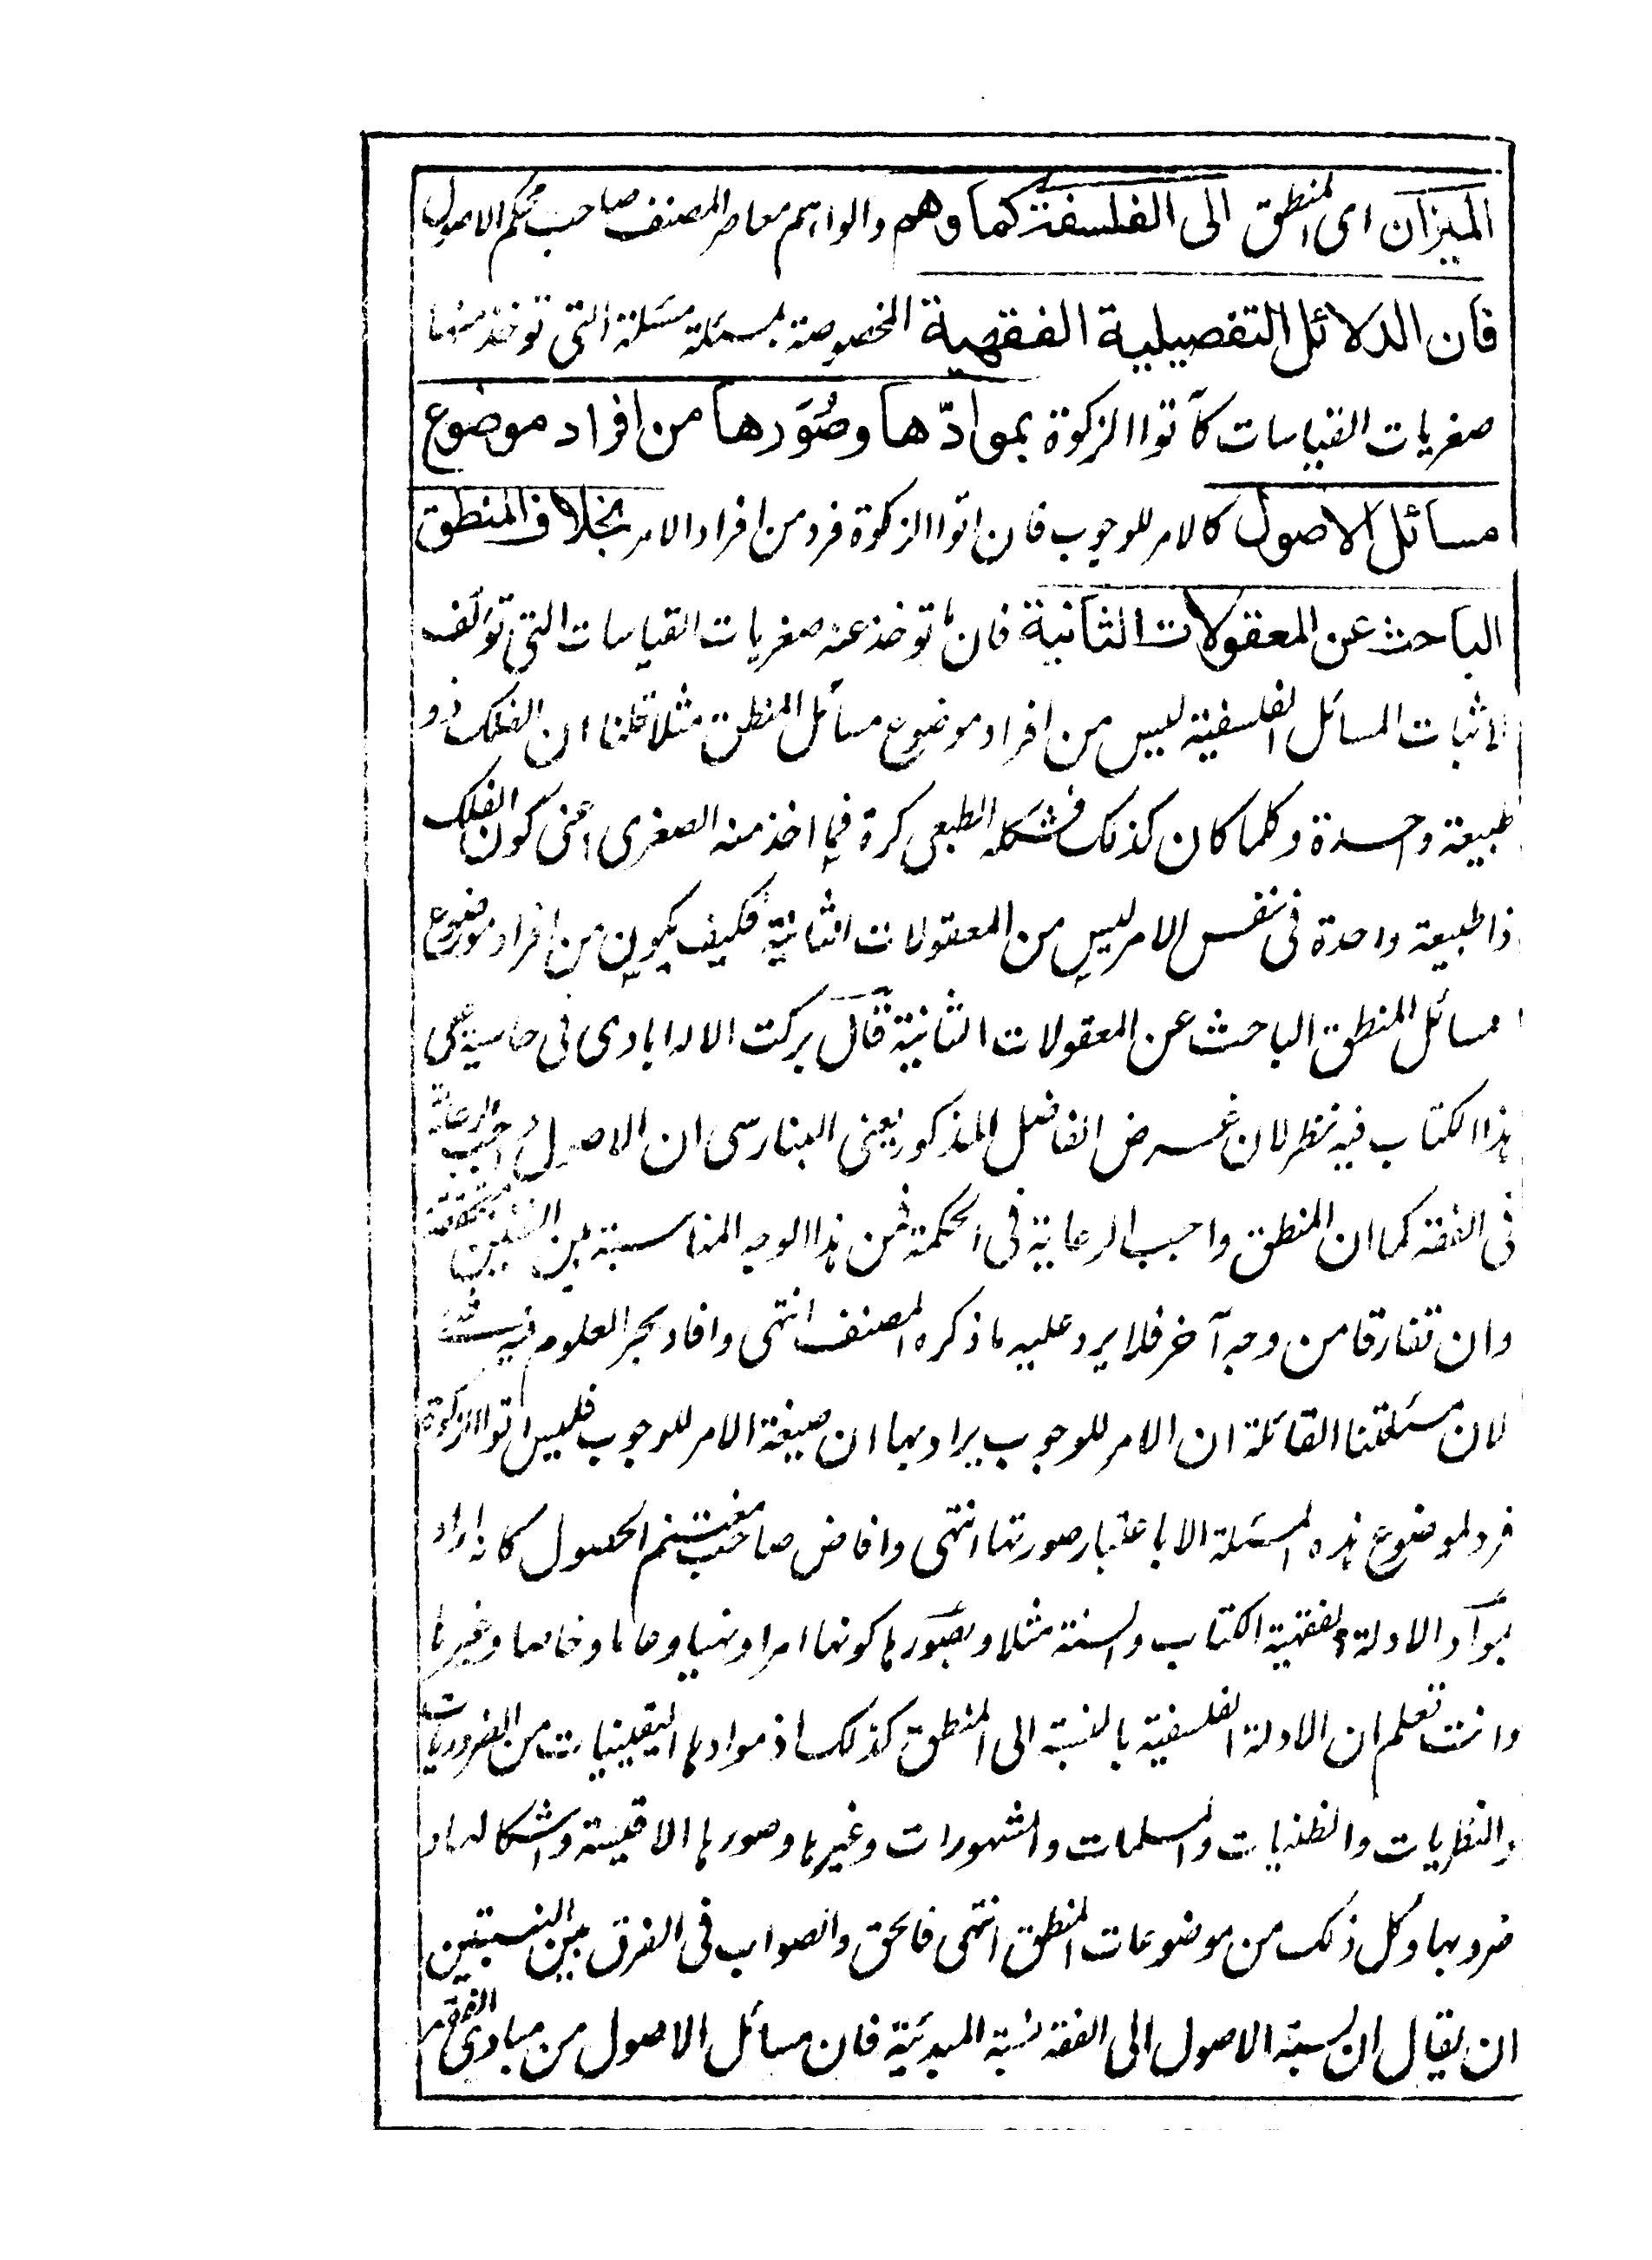 الميزان اى المنطق الى الفلسفة كما وهم والواهم معاصر المصنف صاحب محكم الاصول
فان الدلائل التفصيلية الفقهية المخصوصة بمسئلة مسئلة التى توخذ منها
صغريات القياسات كآتوا الزكوة بموادّها وصُوَرها من افراد موضوع
مسائل الاصول كالامر للوجوب فان اتوا الزكوة فرد من افراد الامر بخلاف المنطق
الباحث عن المعقولات الثانية فان ما توخذ عنه صغريات القياسات التى تؤلف
لاثبات المسائل الفلسفية ليس من افراد موضوع مسائل المنطق مثلا قلنا ان الفلك ذو
طبيعة واحدة وكلما كان كذلك فشكله الطبعى كرة فما اخذ منه الصغرى اعنى كون الفلك
ذا طبيعة واحدة فى نفس الامر ليس من المعقولات الثانية فكيف يكون من افراد موضوع
مسائل المنطق الباحث عن المعقولات الثانية قال بركت الاله ابادى فى حاشيته على
هذا الكتاب فيه نظر لان غرض الفاضل المذكور يعنى البنارسى ان الاصول واجب الرعاية
فى الفقه كما ان المنطق واجب الرعاية فى الحكمة فمن هذا الوجه المناسبة بين الفنين متحققة
وان تفارقا من وجه آخر فلا يرد عليه ما ذكره المصنف انتهى وافاد بحر العلوم فيه شئ
لان مسئلتنا القائلة ان الامر للوجوب يراد بها ان صيغة الامر للوجوب فليس اتوا الزكوة
فرد لموضوع هذه المسئلة الا باعتبار صورتها انتهى وافاض صاحب مغتنم الحصول كانه اراد
بموآد الادلة الفقهية الكتاب والسنة مثلا وبصورها كونها امرا ونهيا وعاما وخاصا وغيرها
وانت تعلم ان الادلة الفلسفية بالنسبة الى المنطق كذلك اذ موادها اليقينيات من الضروريات
والنظريات والظنيات والمسلمات والمشهورات وغيرها وصورها الاقيسة واشكالها و
ضروبها وكل ذلك من موضوعات المنطق انتهى فالحق والصواب فى الفرق بين النسبتين
ان يقال ان نسبة الاصول الى الفقه نسبة المبدئية فان مسائل الاصول من مبادى الفقه